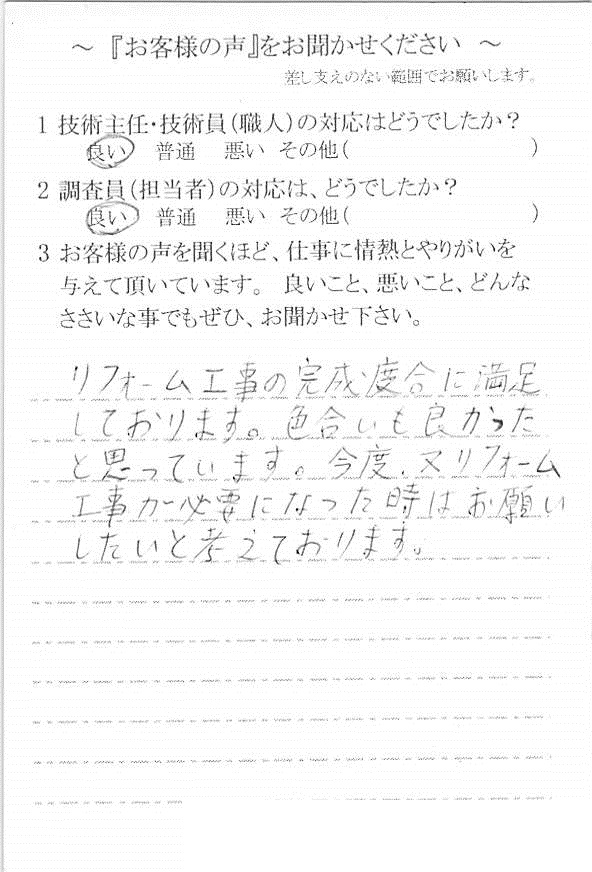 ～『お客様の声』をお聞かせください ～
差し支えのない範囲でお願いします。
1 技術主任・技術員(職人)の対応はどうでしたか？
良い 普通 悪い その他( )
2 調査員(担当者)の対応は、どうでしたか？
良い 普通 悪い その他( )
3 お客様の声を聞くほど、仕事に情熱とやりがいを
与えて頂いています。 良いこと、悪いこと、どんな
ささいな事でもぜひ、お聞かせ下さい。
リフォーム工事の完成度合に満足
しております。色合いも良かった
と思っています。今度、又リフォーム
工事が必要になった時はお願い
したいと考えております。